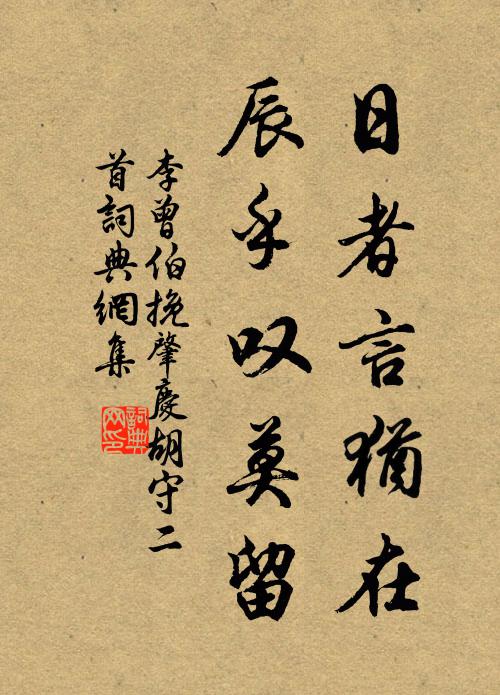 日者言猶在
辰乎叹莫留
李曾伯挽肇慶胡守二
首詞典網集
詞典网印